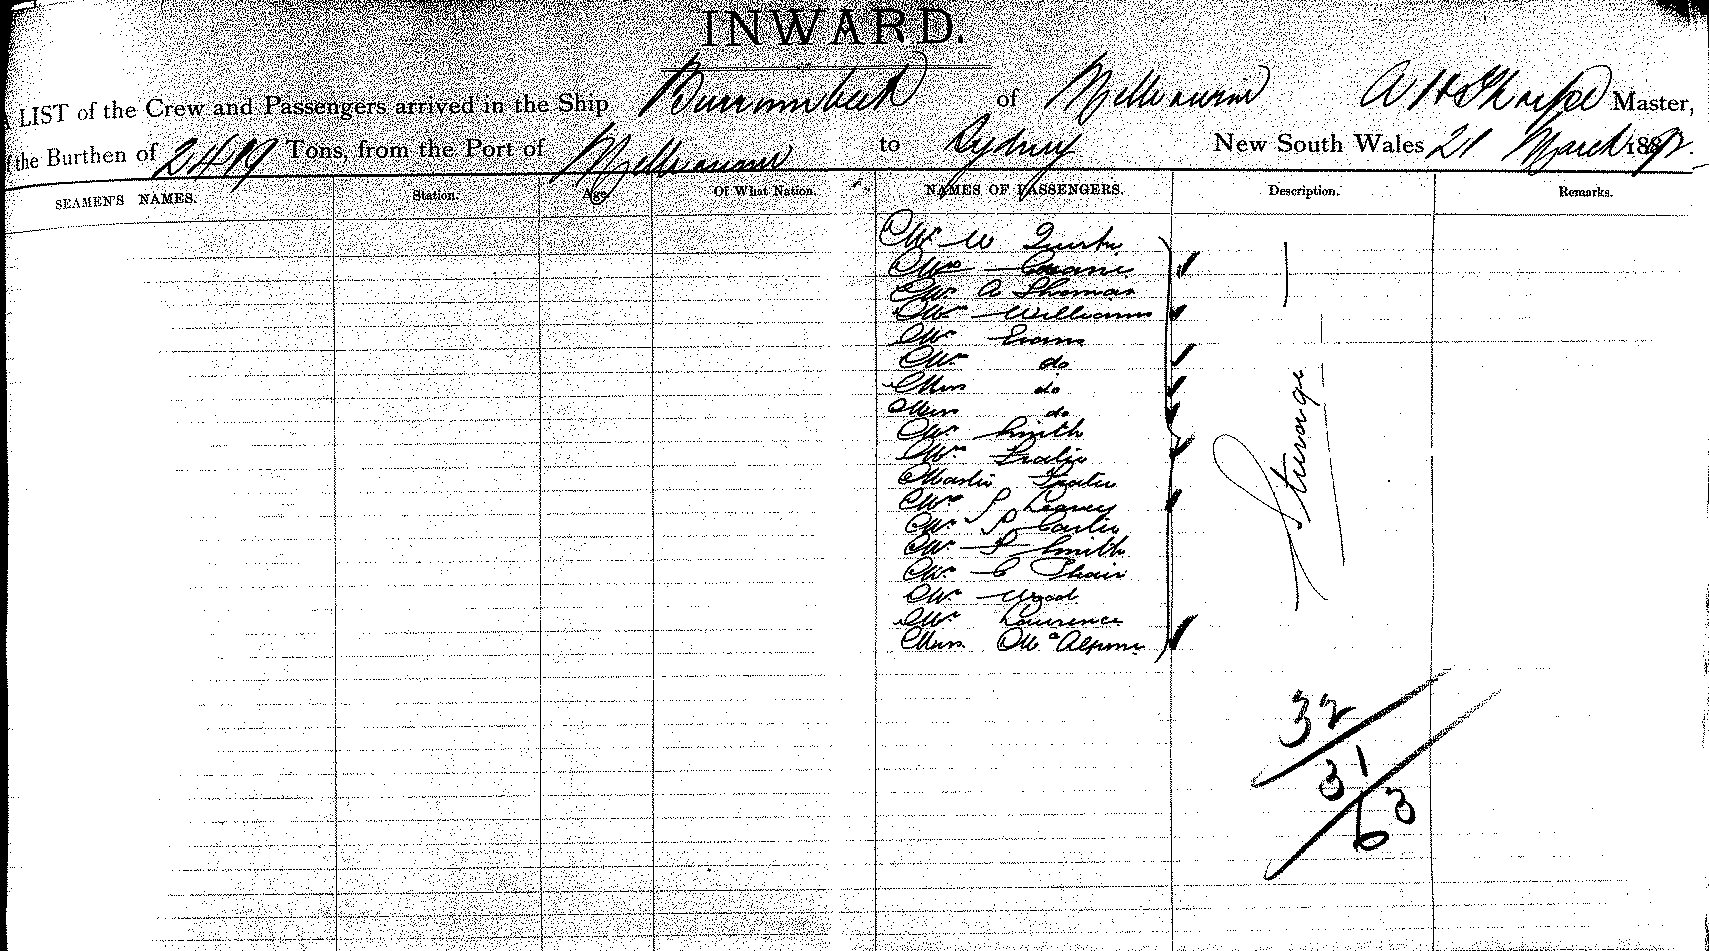 INWARD.
LIST of the Crew and Passengers arrived in the Ship Burrumbeet of Melbourne A H Thorpe Master,
the Burthen of 2419 Tons, from the Port of Melbourne to Sydney New South Wales 21 March 1892.
SEAMEN'S NAMES. Station. Age. Of What Nation. NAMES OF PASSENGERS. Description. Remarks.
Mr W
Mrs
Mr A Thomas
Mr Williams
Mr Evans
Mr do
Miss do
Miss do
Mr Smith
Mr
Master
Mrs
Mr
Mr Smith
Mr C
Mr Wood
Mr Lawrence
Miss McAlpine
Steerage
32
31
63